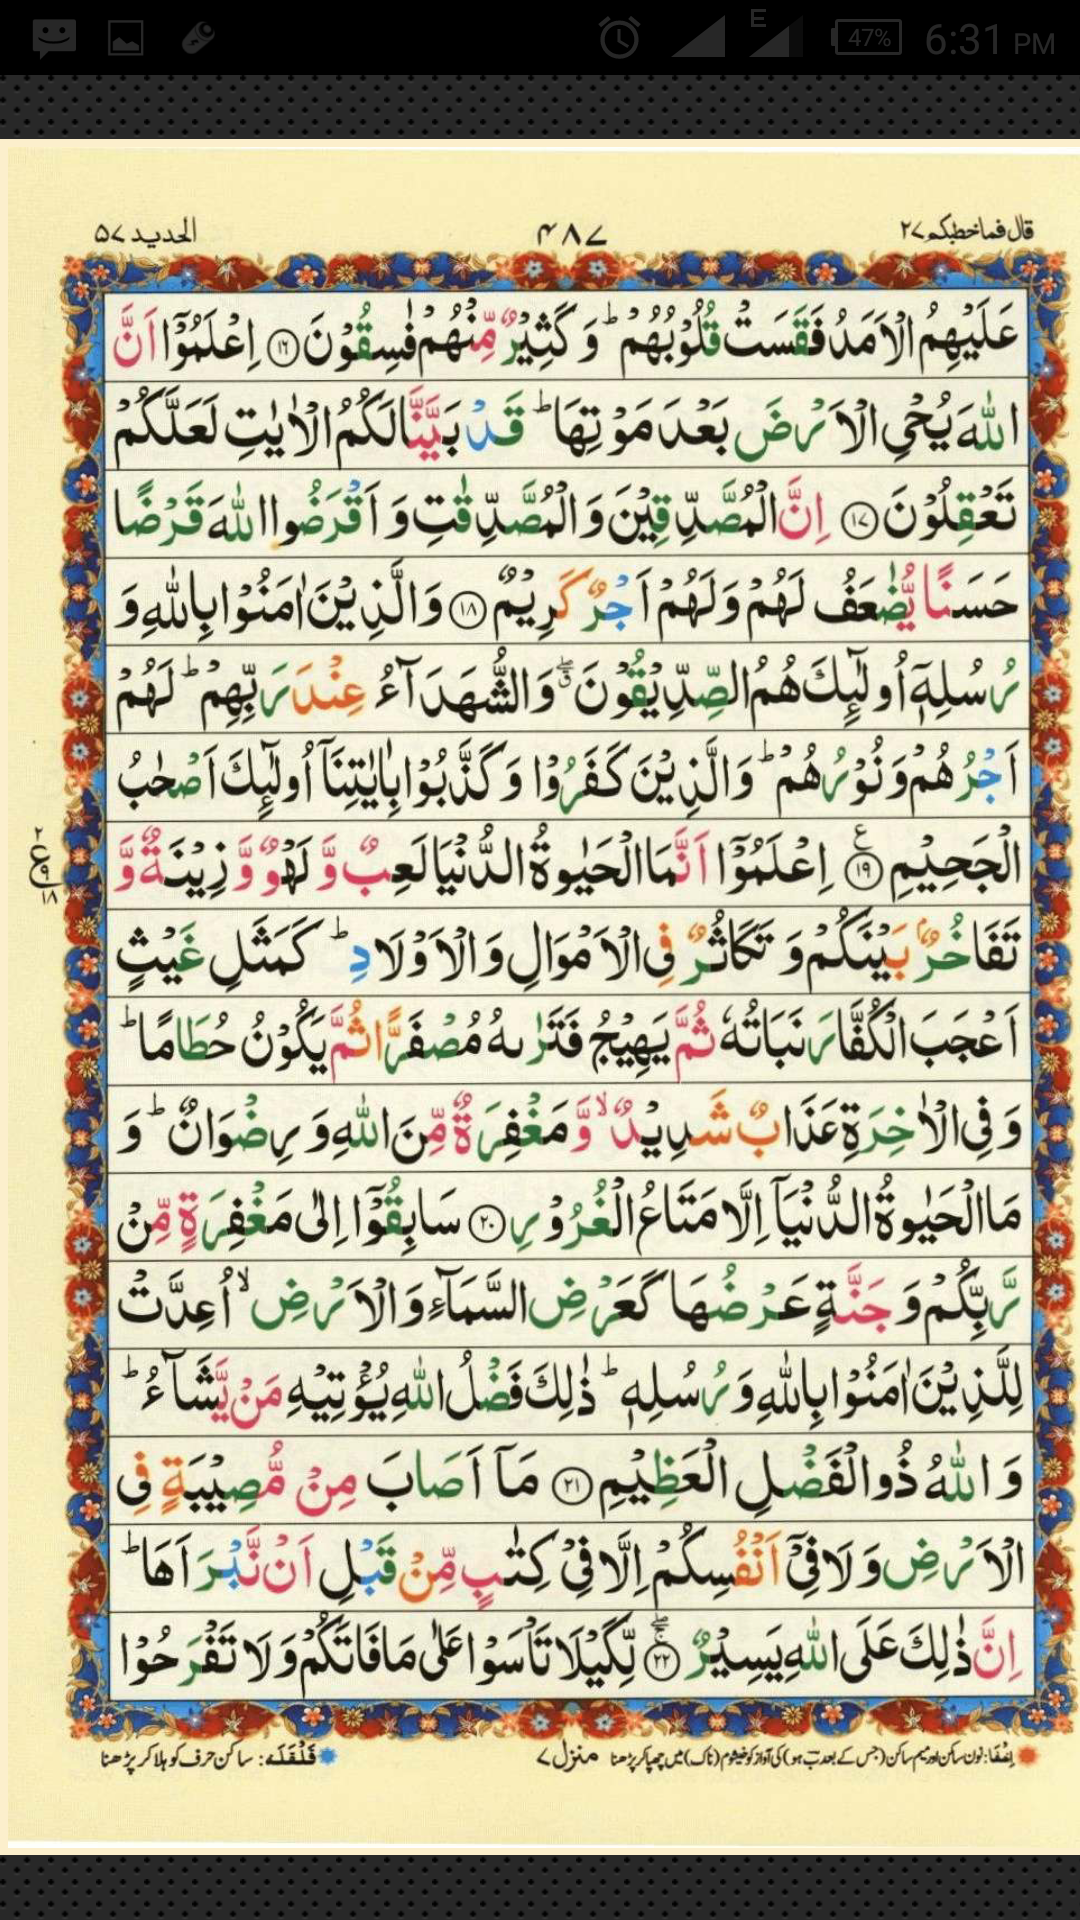 47% 6:31 PM
E
قال فما خطبكم ۲۷
۴۸۷
الحديد ۵۷
عَلَيْهِمُ الْاَمَدُ فَقَسَتْ قُلُوْبُهُمْ ؕ وَ كَثِيْرٌ مِّنْهُمْ فٰسِقُوْنَ ﴿۱۶﴾ اِعْلَمُوْۤا اَنَّ
اللّٰهَ يُحْيِ الْاَرْضَ بَعْدَ مَوْتِهَا ؕ قَدْ بَيَّنَّا لَكُمُ الْاٰيٰتِ لَعَلَّكُمْ
تَعْقِلُوْنَ ﴿۱۷﴾ اِنَّ الْمُصَّدِّقِيْنَ وَ الْمُصَّدِّقٰتِ وَ اَقْرَضُوا اللّٰهَ قَرْضًا
حَسَنًا يُّضٰعَفُ لَهُمْ وَ لَهُمْ اَجْرٌ كَرِيْمٌ ﴿۱۸﴾ وَ الَّذِيْنَ اٰمَنُوْا بِاللّٰهِ وَ
رُسُلِهٖۤ اُولٰٓئِكَ هُمُ الصِّدِّيْقُوْنَ ۖۗ وَ الشُّهَدَآءُ عِنْدَ رَبِّهِمْ ؕ لَهُمْ
اَجْرُهُمْ وَ نُوْرُهُمْ ؕ وَ الَّذِيْنَ كَفَرُوْا وَ كَذَّبُوْا بِاٰيٰتِنَاۤ اُولٰٓئِكَ اَصْحٰبُ
الْجَحِيْمِ ﴿۱۹﴾ ع اِعْلَمُوْۤا اَنَّمَا الْحَيٰوةُ الدُّنْيَا لَعِبٌ وَّ لَهْوٌ وَّ زِيْنَةٌ وَّ
۲ ع ۹ ۱۸
تَفَاخُرٌۢ بَيْنَكُمْ وَ تَكَاثُرٌ فِي الْاَمْوَالِ وَ الْاَوْلَادِ ؕ كَمَثَلِ غَيْثٍ
اَعْجَبَ الْكُفَّارَ نَبَاتُهٗ ثُمَّ يَهِيْجُ فَتَرٰىهُ مُصْفَرًّا ثُمَّ يَكُوْنُ حُطَامًا ؕ
وَ فِي الْاٰخِرَةِ عَذَابٌ شَدِيْدٌ ۙ وَّ مَغْفِرَةٌ مِّنَ اللّٰهِ وَ رِضْوَانٌ ؕ وَ
مَا الْحَيٰوةُ الدُّنْيَاۤ اِلَّا مَتَاعُ الْغُرُوْرِ ﴿۲۰﴾ سَابِقُوْۤا اِلٰى مَغْفِرَةٍ مِّنْ
رَّبِّكُمْ وَ جَنَّةٍ عَرْضُهَا كَعَرْضِ السَّمَآءِ وَ الْاَرْضِ ۙ اُعِدَّتْ
لِلَّذِيْنَ اٰمَنُوْا بِاللّٰهِ وَ رُسُلِهٖ ؕ ذٰلِكَ فَضْلُ اللّٰهِ يُؤْتِيْهِ مَنْ يَّشَآءُ ؕ
وَ اللّٰهُ ذُو الْفَضْلِ الْعَظِيْمِ ﴿۲۱﴾ مَاۤ اَصَابَ مِنْ مُّصِيْبَةٍ فِي
الْاَرْضِ وَ لَا فِيْۤ اَنْفُسِكُمْ اِلَّا فِيْ كِتٰبٍ مِّنْ قَبْلِ اَنْ نَّبْرَاَهَا ؕ
اِنَّ ذٰلِكَ عَلَى اللّٰهِ يَسِيْرٌ ﴿۲۲﴾ ۚۖ لِّكَيْلَا تَاْسَوْا عَلٰى مَا فَاتَكُمْ وَ لَا تَفْرَحُوْا
اِخفا: نون ساکن اور میم ساکن (جس کے بعد ب ہو) کی آواز کو خیشوم (ناک) میں چھپا کر پڑھنا منزل ۷ قَلْقَلَہ: ساکن حرف کو ہلا کر پڑھنا